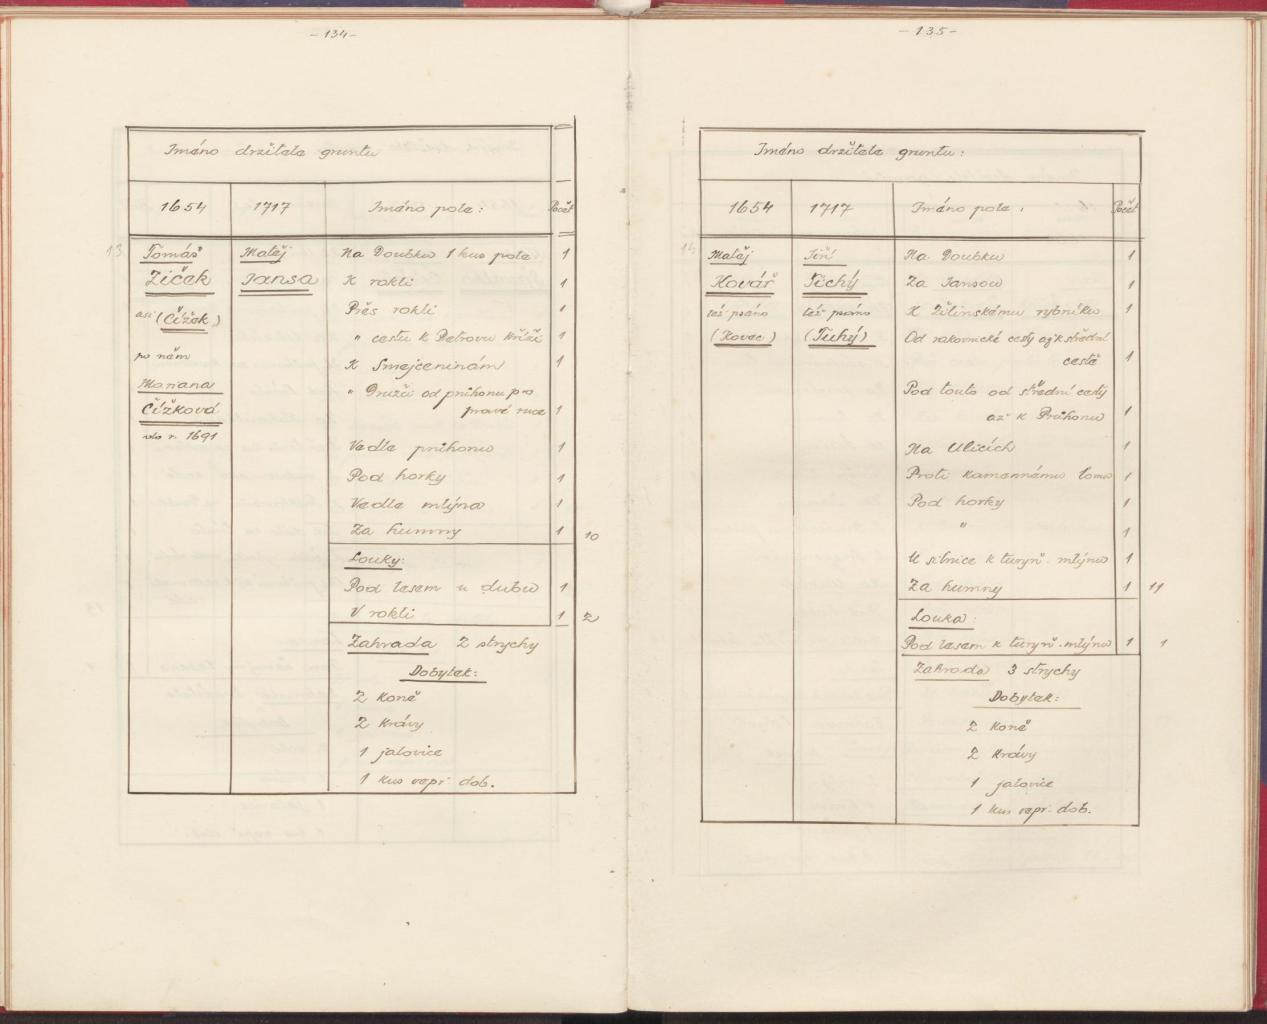 - 134 -
Jméno držitele gruntu
1654 1717 Jméno pole: Počet
13 Tomáš Matěj Na Doubku 1 kus pole 1
Žíček Jansa K rokli 1
asi (Čížek) Přes rokli 1
" cestu k Petrovu kříži 1
po něm K Smejčeninám 1
Mariana " Družci od průhonu po
Čížková pravé ruce 1
do r. 1691
Vedle průhonu 1
Pod horky 1
Vedle mlýna 1
Za humny 1 10
Louky:
Pod lesem u dubu 1
V rokli 1 2
Zahrada 2 strychy
Dobytek:
2 koně
2 krávy
1 jalovice
1 kus vepř. dob.
- 135 -
Jméno držitele gruntu:
1654 1717 Jméno pole: Počet
14 Matěj Jiří Na Doubku 1
Kovář Tichý Za Jansou 1
též psáno též psáno K Žilinskému rybníku 1
(Kovec) (Tuhý) Od rakovnické cesty až k střední
cestě 1
Pod touto od střední cesty
až k Průhonu 1
Na Ulicích 1
Proti kamennému lomu 1
Pod horky 1
" 1
U silnice k turyň. mlýnu 1
Za humny 1 11
Louka:
Pod lesem k turyň. mlýnu 1 1
Zahrada 3 strychy
Dobytek:
2 koně
2 krávy
1 jalovice
1 kus vepř. dob.